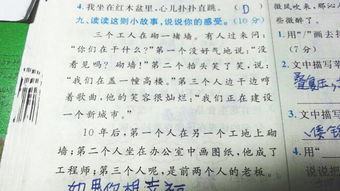 4. 我坐在红木盆里,心儿扑扑直跳。 (D)
九、读读这则小故事,说说你的感受。(10分)
三个工人在砌一堵墙。有人过来问:
“你们在干什么?”第一个没好气地说:“没
看见吗?砌墙!”第二个抬头笑了笑,说:
“我们在盖一幢高楼。”第三个人边干边哼
着歌曲,他的笑容很灿烂:“我们正在建设
一个新城市。”
10年后,第一个人在另一个工地上砌
墙;第二个人坐在办公室中画图纸,他成了
工程师;第三个人呢,是前两个人的老板。
如果你想幸福
微风吹来,那
些微醉了。
用“/”画去括
(7分)
2. 文中描写
3. 文中描写
4. 用“
说说把